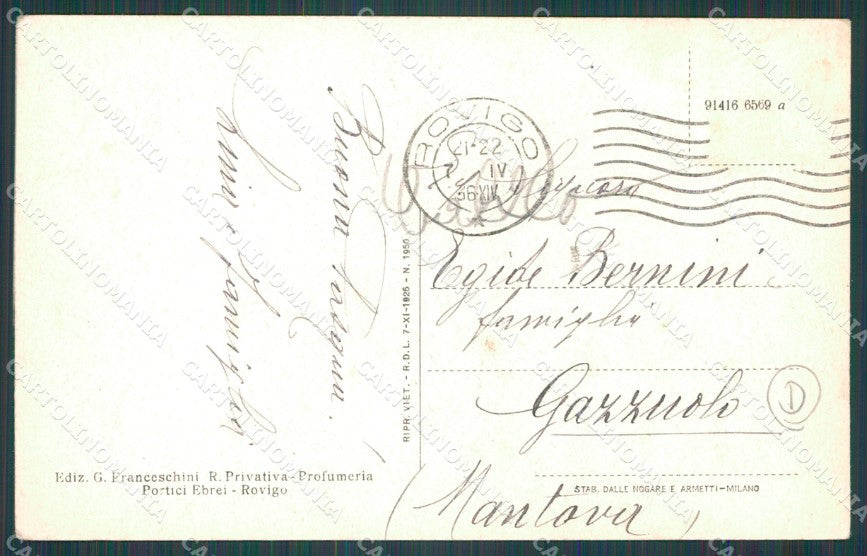 Buona Pasqua.
e famiglia
Ediz. G. Franceschini R. Privativa-Profumeria
Portici Ebrei - Rovigo
RIPR. VIET. - R.D.L. 7-XI-1925 - N. 1950
ROVIGO
21-22
IV
36 XIV
91416 6569 a
Egide Bernini
famiglia
Gazzuolo
(Mantova)
D
STAB. DALLE NOGARE E ARMETTI-MILANO
CARTOLINOMANIA